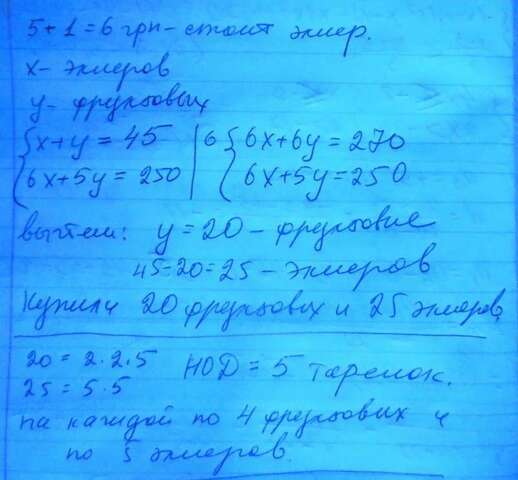 5+1=6 грн - стоит эклер.
x - эклеров
y - фруктовых
{x+y=45 |6 {6x+6y=270
{6x+5y=250 | {6x+5y=250
вычтем: y=20 - фруктовые
45-20=25 - эклеров
Купили 20 фруктовых и 25 эклеров
20=2·2·5 НОД=5 тарелок.
25=5·5
на каждой по 4 фруктовых и
по 5 эклеров.